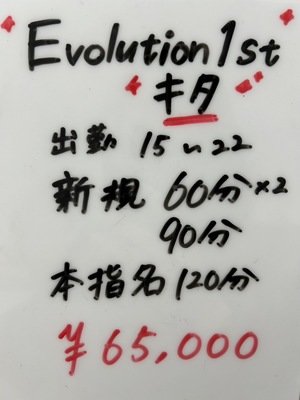 Evolution 1st
キタ
出勤 15〜22
新規 60分×2
90分
本指名 120分
¥65,000